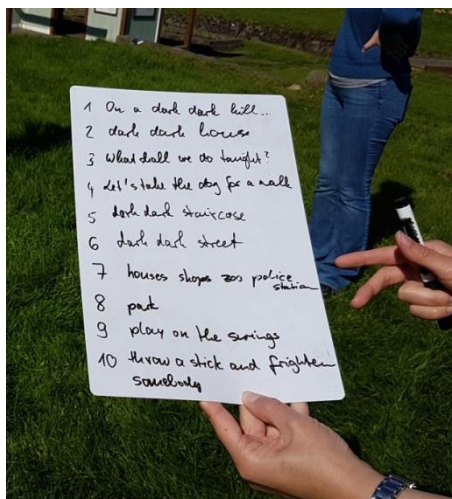 1 On a dark dark hill...
2 dark dark house
3 What shall we do tonight?
4 Let's take the dog for a walk
5 dark dark staircase
6 dark dark street
7 houses shops zoo police
station
8 park
9 play on the swings
10 throw a stick and frighten
somebody